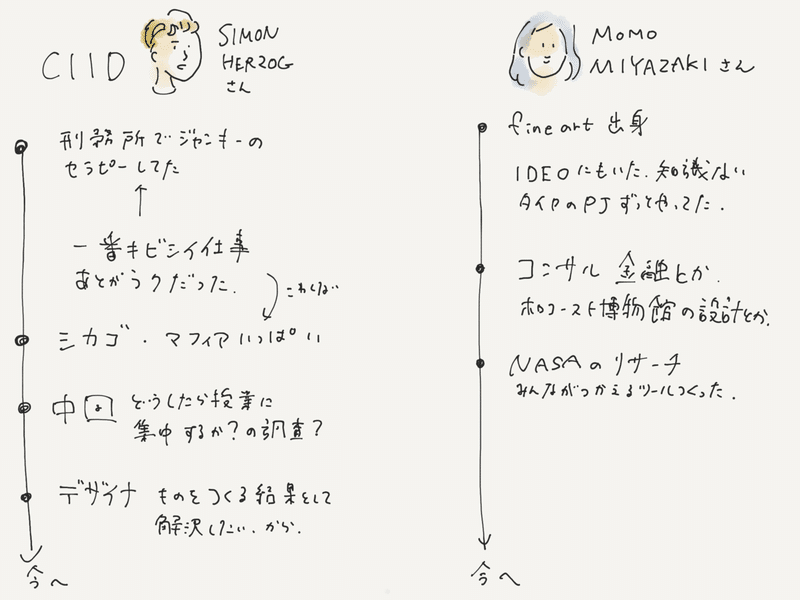 CIID
SIMON
HERZOG
さん
刑務所でジャンキーの
セラピーしてた
一番キビシイ仕事
あとがラクだった.
こわくない
シカゴ・マフィアいっぱい
中国 どうしたら授業に
集中するか?の調査?
デザイナ ものをつくる結果として
解決したい、から.
今へ
MOMO
MIYAZAKIさん
fine art 出身
IDEOにもいた. 知識ない
タイヤのPJ ずっとやってた.
コンサル 金融とか.
ホロコースト博物館の設計とか.
NASAのリサーチ
みんながつかえるツールつくった.
今へ